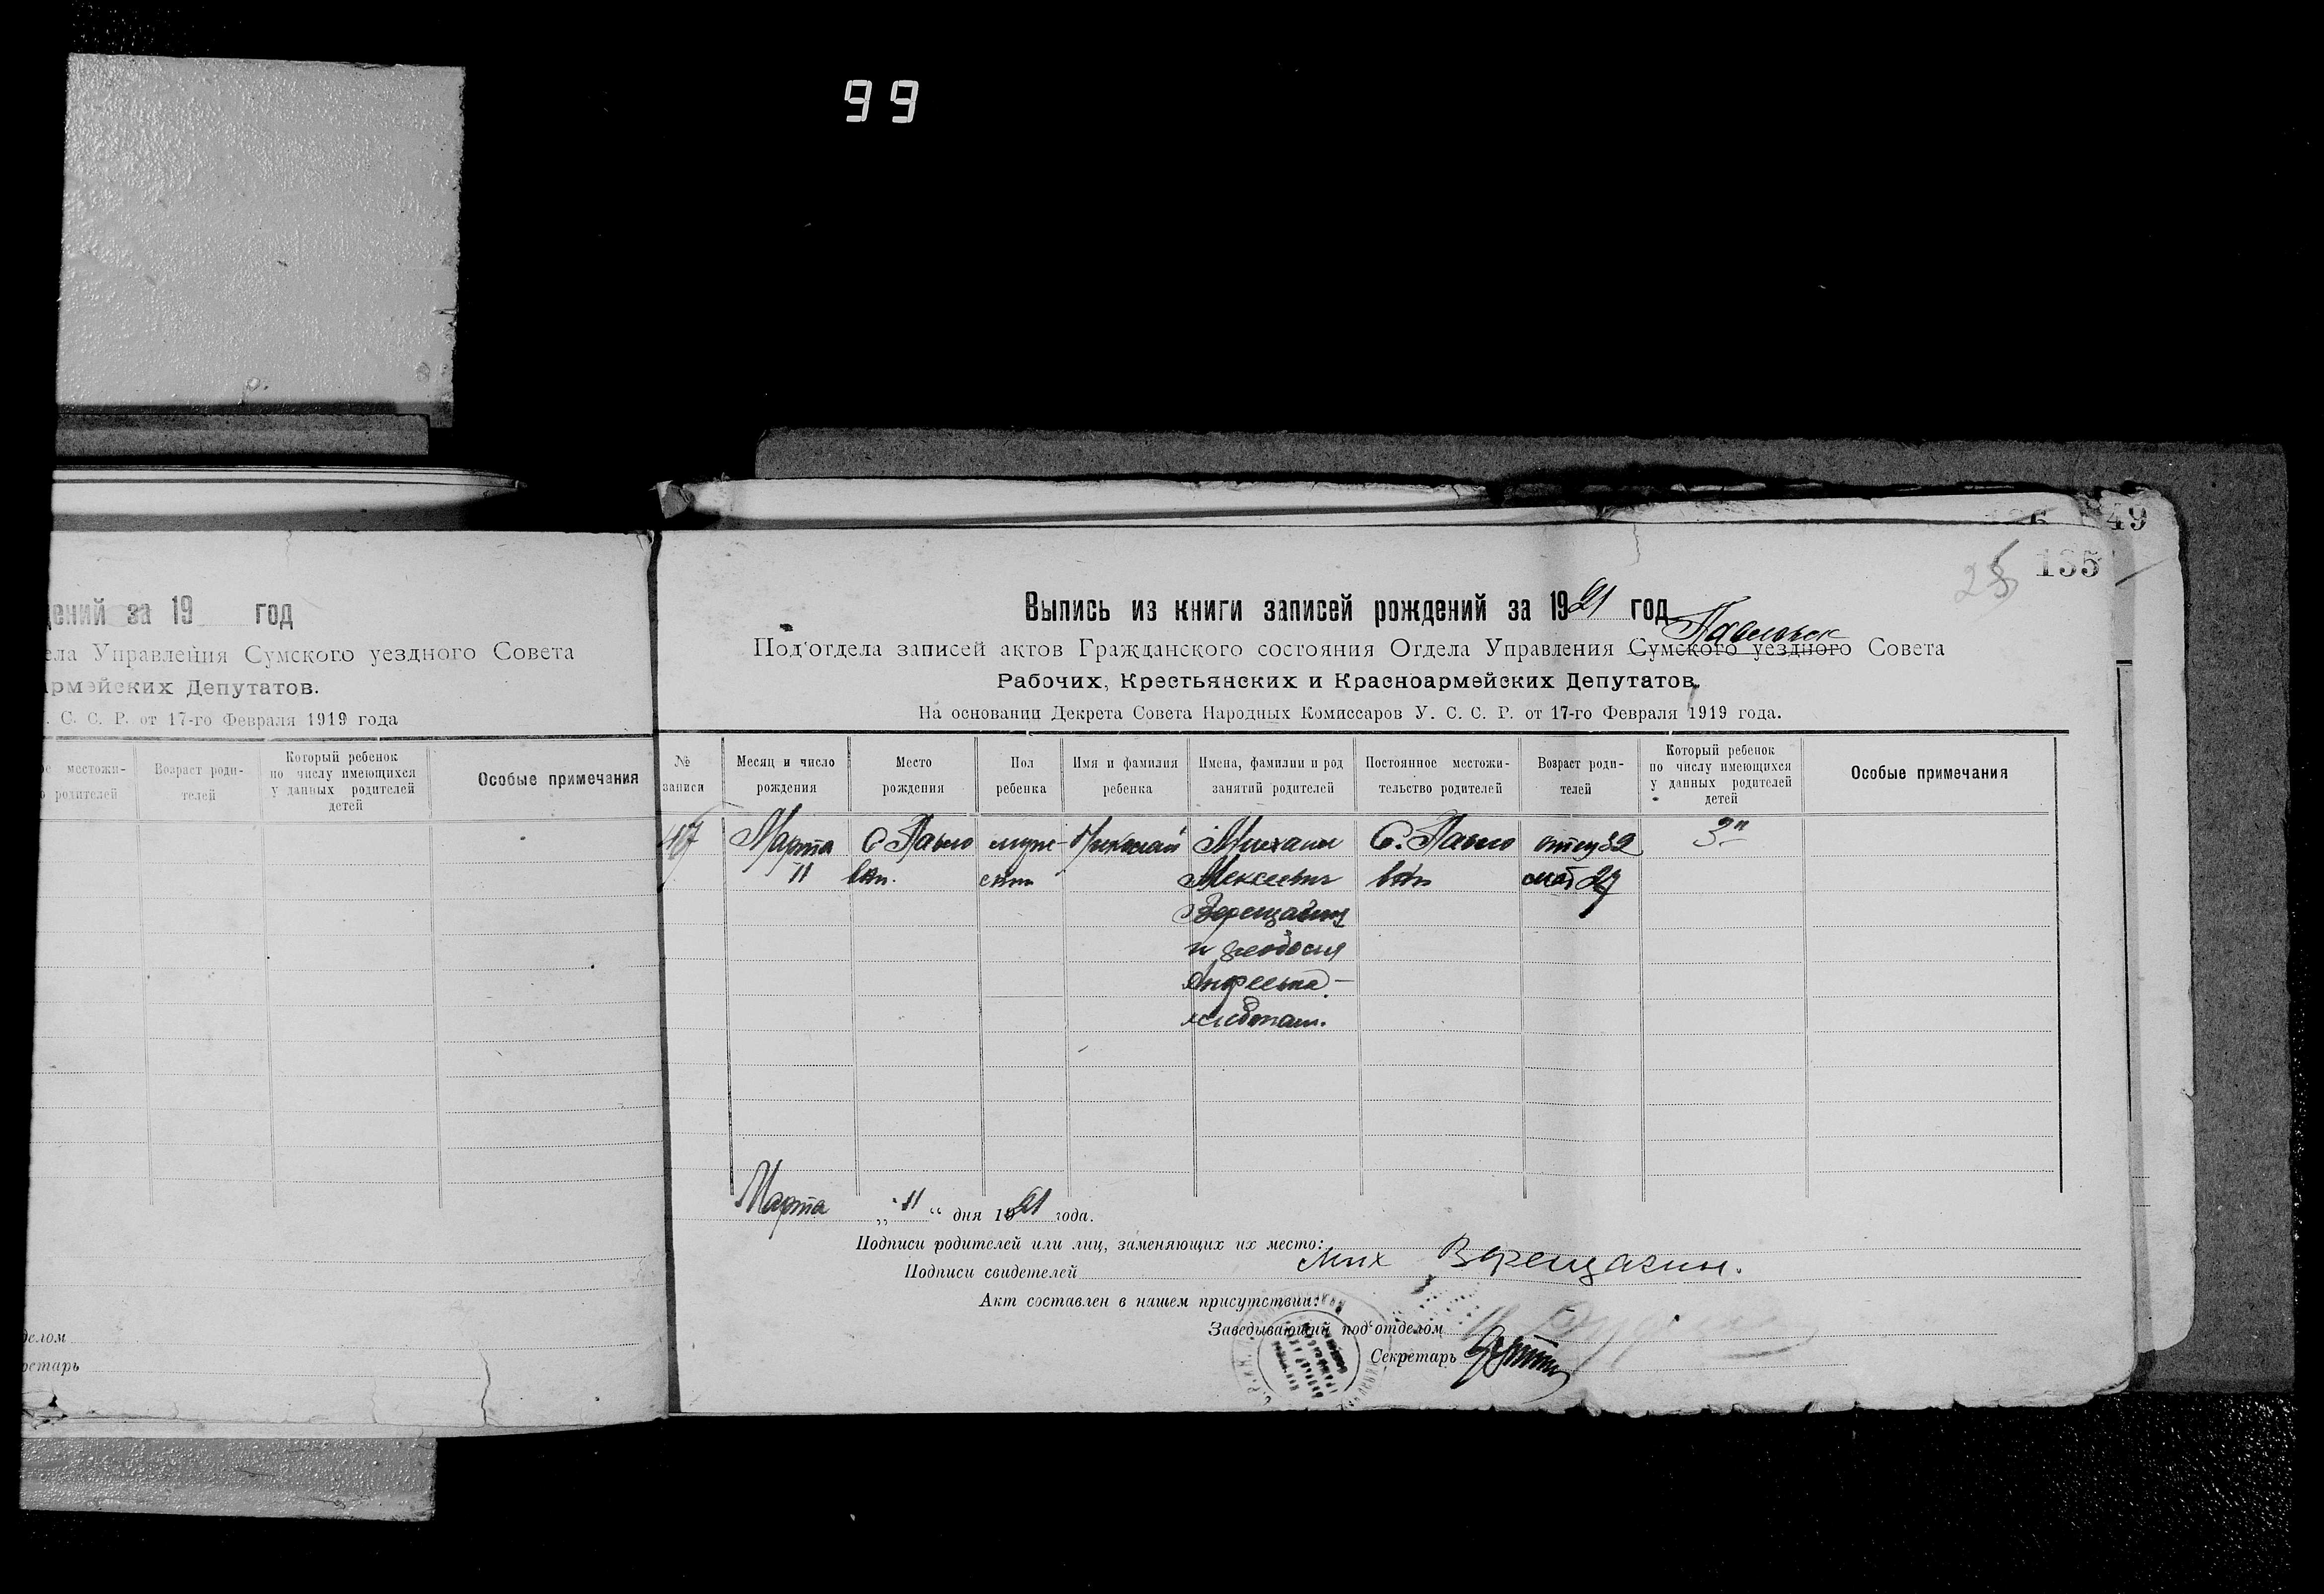 99
49
135
дений за 19 год
ела Управления Сумского уездного Совета
армейских Депутатов.
. С. С. Р. от 17-го Февраля 1919 года
местожи-
родителей
Возраст роди-
телей
Который ребенок
по числу имеющихся
у данных родителей
детей
Особые примечания
делом
ретарь
Выпись из книги записей рождений за 1921 год
Павловск
Под'отдела записей актов Гражданского состояния Отдела Управления Сумского уездного Совета
Рабочих, Крестьянских и Красноармейских Депутатов.
На основании Декрета Совета Народных Комиссаров У. С. С. Р. от 17-го Февраля 1919 года.
№
записи
Месяц и число
рождения
Место
рождения
Пол
ребенка
Имя и фамилия
ребенка
Имена, фамилии и род
занятий родителей
Постоянное местожи-
тельство родителей
Возраст роди-
телей
Который ребенок
по числу имеющихся
у данных родителей
детей
Особые примечания
Марта
11
С Павло
муже-
ский
Николай
Михаил
Алексеевич
Верещагин
и Феодосия
Андреевна -
хлебопаш.
С. Павло
отец 32
мат 27
3й
Марта „11“ дня 1921 года.
Подписи родителей или лиц, заменяющих их место:
Мих Верещагин.
Подписи свидетелей
Акт составлен в нашем присутствии:
Заведывающий под'отделом
Секретарь